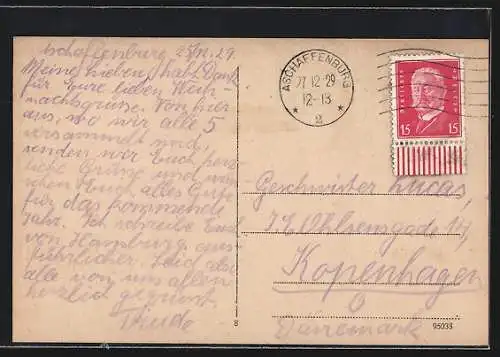 schaffenburg 25.12.29
Meine Lieben, habt Dank
für Eure lieben Weih-
nachtsgrüsse. Von hier
aus, wo wir alle 5
versammelt sind,
senden wir Euch herz-
liche Grüsse und wün-
schen Euch alles Gute
für das kommende
Jahr. Ich schreibe Euch
von Hamburg aus
führlicher. Seid also
alle von uns allen
herzlich gegrüsst.
ASCHAFFENBURG
27.12.29
12-13
* 2 *
DEUTSCHES REICH
15 15
Geschwister Lucas,
Kopenhagen
Dänemark
8
95033